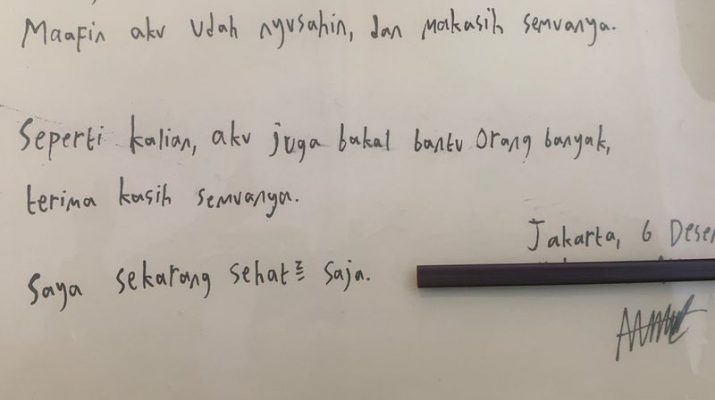 Maafin aku udah nyusahin, dan makasih semuanya.
Seperti kalian, aku juga bakal bantu orang banyak,
terima kasih semuanya.
Jakarta, 6 Desem
Saya sekarang sehat² saja.